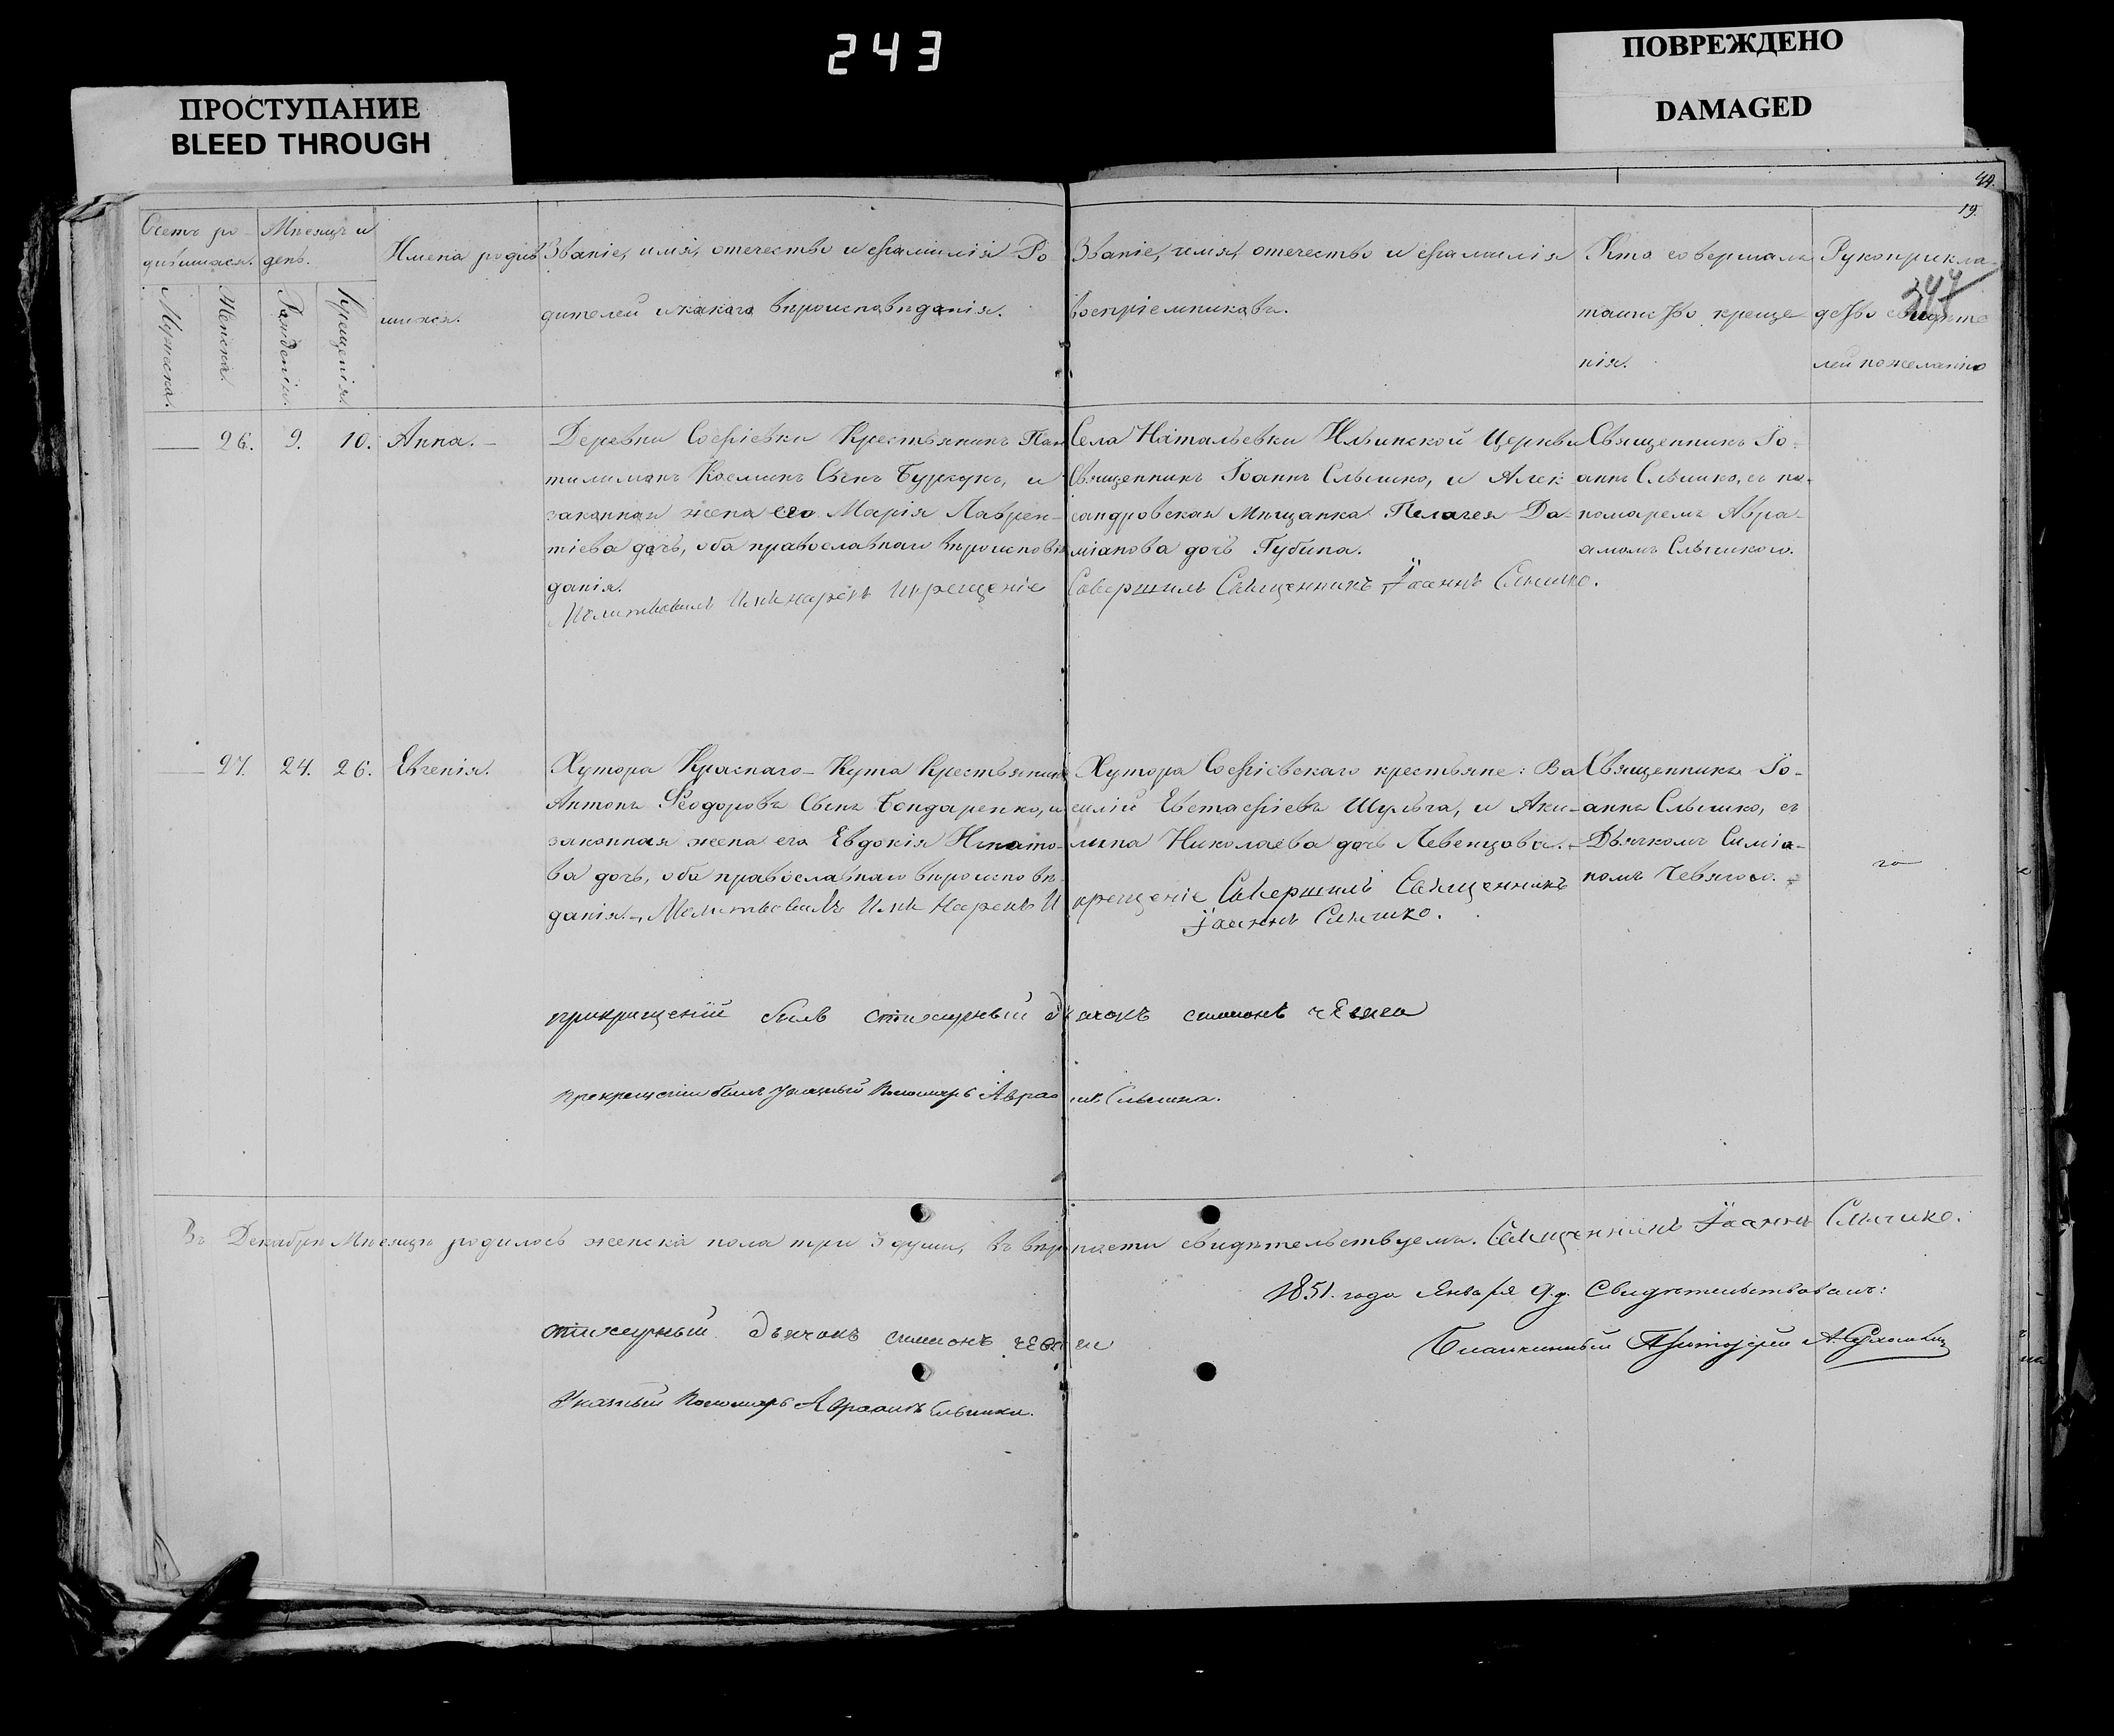 243
ПРОСТУПАНИЕ
BLEED THROUGH
ПОВРЕЖДЕНО
DAMAGED
19.
347
Счетъ родившихся.
Мужеска.
Женска.
Мѣсяцъ и день.
Рожденія.
Крещенія.
Имена родив
шихся.
Званіе, имя, отечество и фамилія Ро
дителей и какого вѣроисповѣданія.
Званіе, имя, отечество и фамилія
воспріемниковъ.
Кто совершалъ
таинство креще
нія.
Рукоприкла
дство свидѣте
лей по желанію
26. 9. 10. Анна.
Деревни Софіевки Крестьянинъ Пан
тилимонъ Косминъ Сынъ Буркунъ, и
законная жена его Марія Лаврен-
тіева дочь, оба православнаго вѣроисповѣ
данія.
Молитвовалъ Имя нарекъ И крещеніе
Села Натальевки Ильинской Церкви
Священникъ Іоаннъ Слышко, и Алек
сандровская Мѣщанка Пелагея Да-
міанова дочь Губина.
Совершилъ Священникъ Іоаннъ Слышко.
Священникъ Іо-
аннъ Слышко, съ по-
номаремъ Авра-
амомъ Слышкою.
27. 24. 26. Евгенія.
Хутора Краснаго-Кута Крестьянинъ
Антонъ Ѳеодоровъ Сынъ Бондаренко, и
законная жена его Евдокія Игнато-
ва дочь, оба православнаго вѣроисповѣ-
данія. Молитвовалъ Имя Нарекъ И
Хутора Софіевскаго крестьяне: Ва
силій Евстафіевъ Шульга, и Аки-
лина Николаева дочь Левенцова.
крещеніе Совершилъ Священникъ
Іоаннъ Слышко.
Священникъ Іо-
аннъ Слышко, съ
Дьячкомъ Симіо-
номъ
прикрищеніи былъ дьячокъ симионъ
прекрещеніи былъ Указный Пономарь Авраамъ Слышка.
Въ Декабрѣ Мѣсяцѣ родилось женска пола три 3 души, въ вѣрности свидѣтельствуемъ. Священникъ Іоаннъ Слышко.
1851. года Января 9. д. Свидѣтельствовалъ:
дьячокъ симионъ
Благочинный Протоіерей А.
Указный Пономарь Авраамъ Слышка.